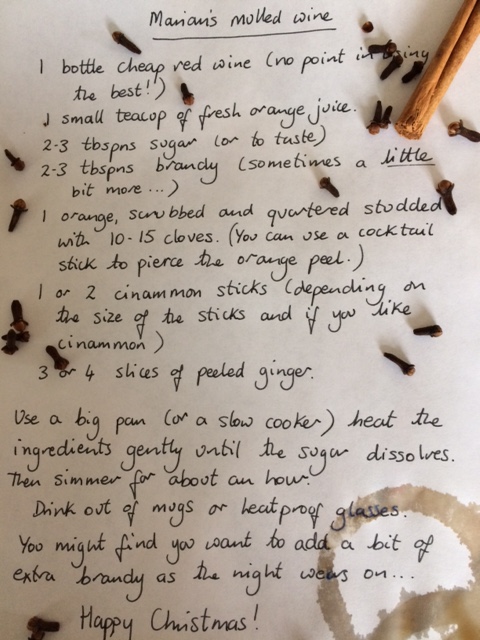 Marian's mulled wine
1 bottle cheap red wine (no point in using
the best!)
1 small teacup of fresh orange juice.
2-3 tbspns sugar (or to taste)
2-3 tbspns brandy (sometimes a little
bit more...)
1 orange, scrubbed and quartered studded
with 10-15 cloves. (You can use a cocktail
stick to pierce the orange peel.)
1 or 2 cinammon sticks (depending on
the size of the sticks and if you like
cinammon)
3 or 4 slices of peeled ginger.
Use a big pan (or a slow cooker) heat the
ingredients gently until the sugar dissolves.
Then simmer for about an hour.
Drink out of mugs or heatproof glasses.
You might find you want to add a bit of
extra brandy as the night wears on...
Happy Christmas!